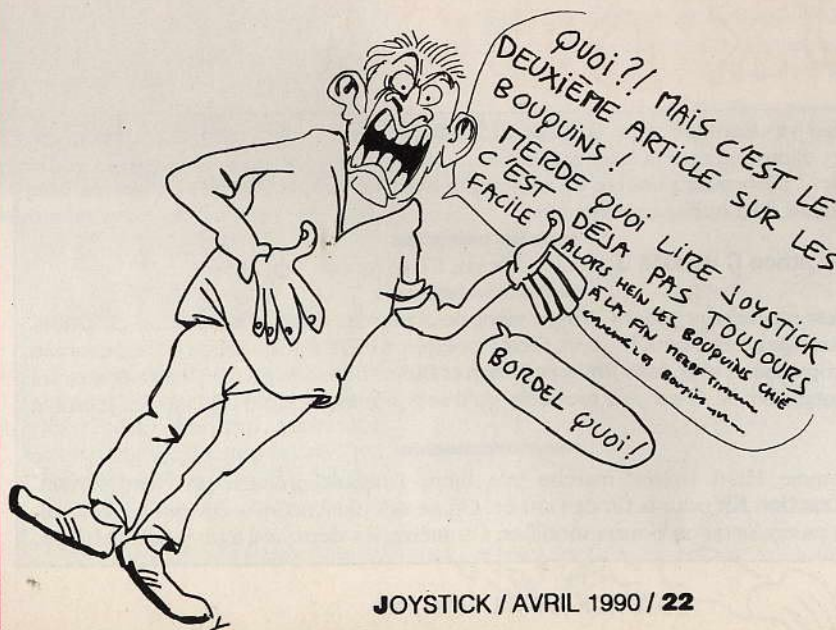 QUOI ?! MAIS C'EST LE
DEUXIÈME ARTICLE SUR LES
BOUQUINS !
MERDE QUOI LIRE JOYSTICK
C'EST DÉJA PAS TOUJOURS
FACILE
ALORS HEIN LES BOUQUINS CHIÉ
À LA FIN MERDE
BORDEL QUOI !
JOYSTICK / AVRIL 1990 / 22